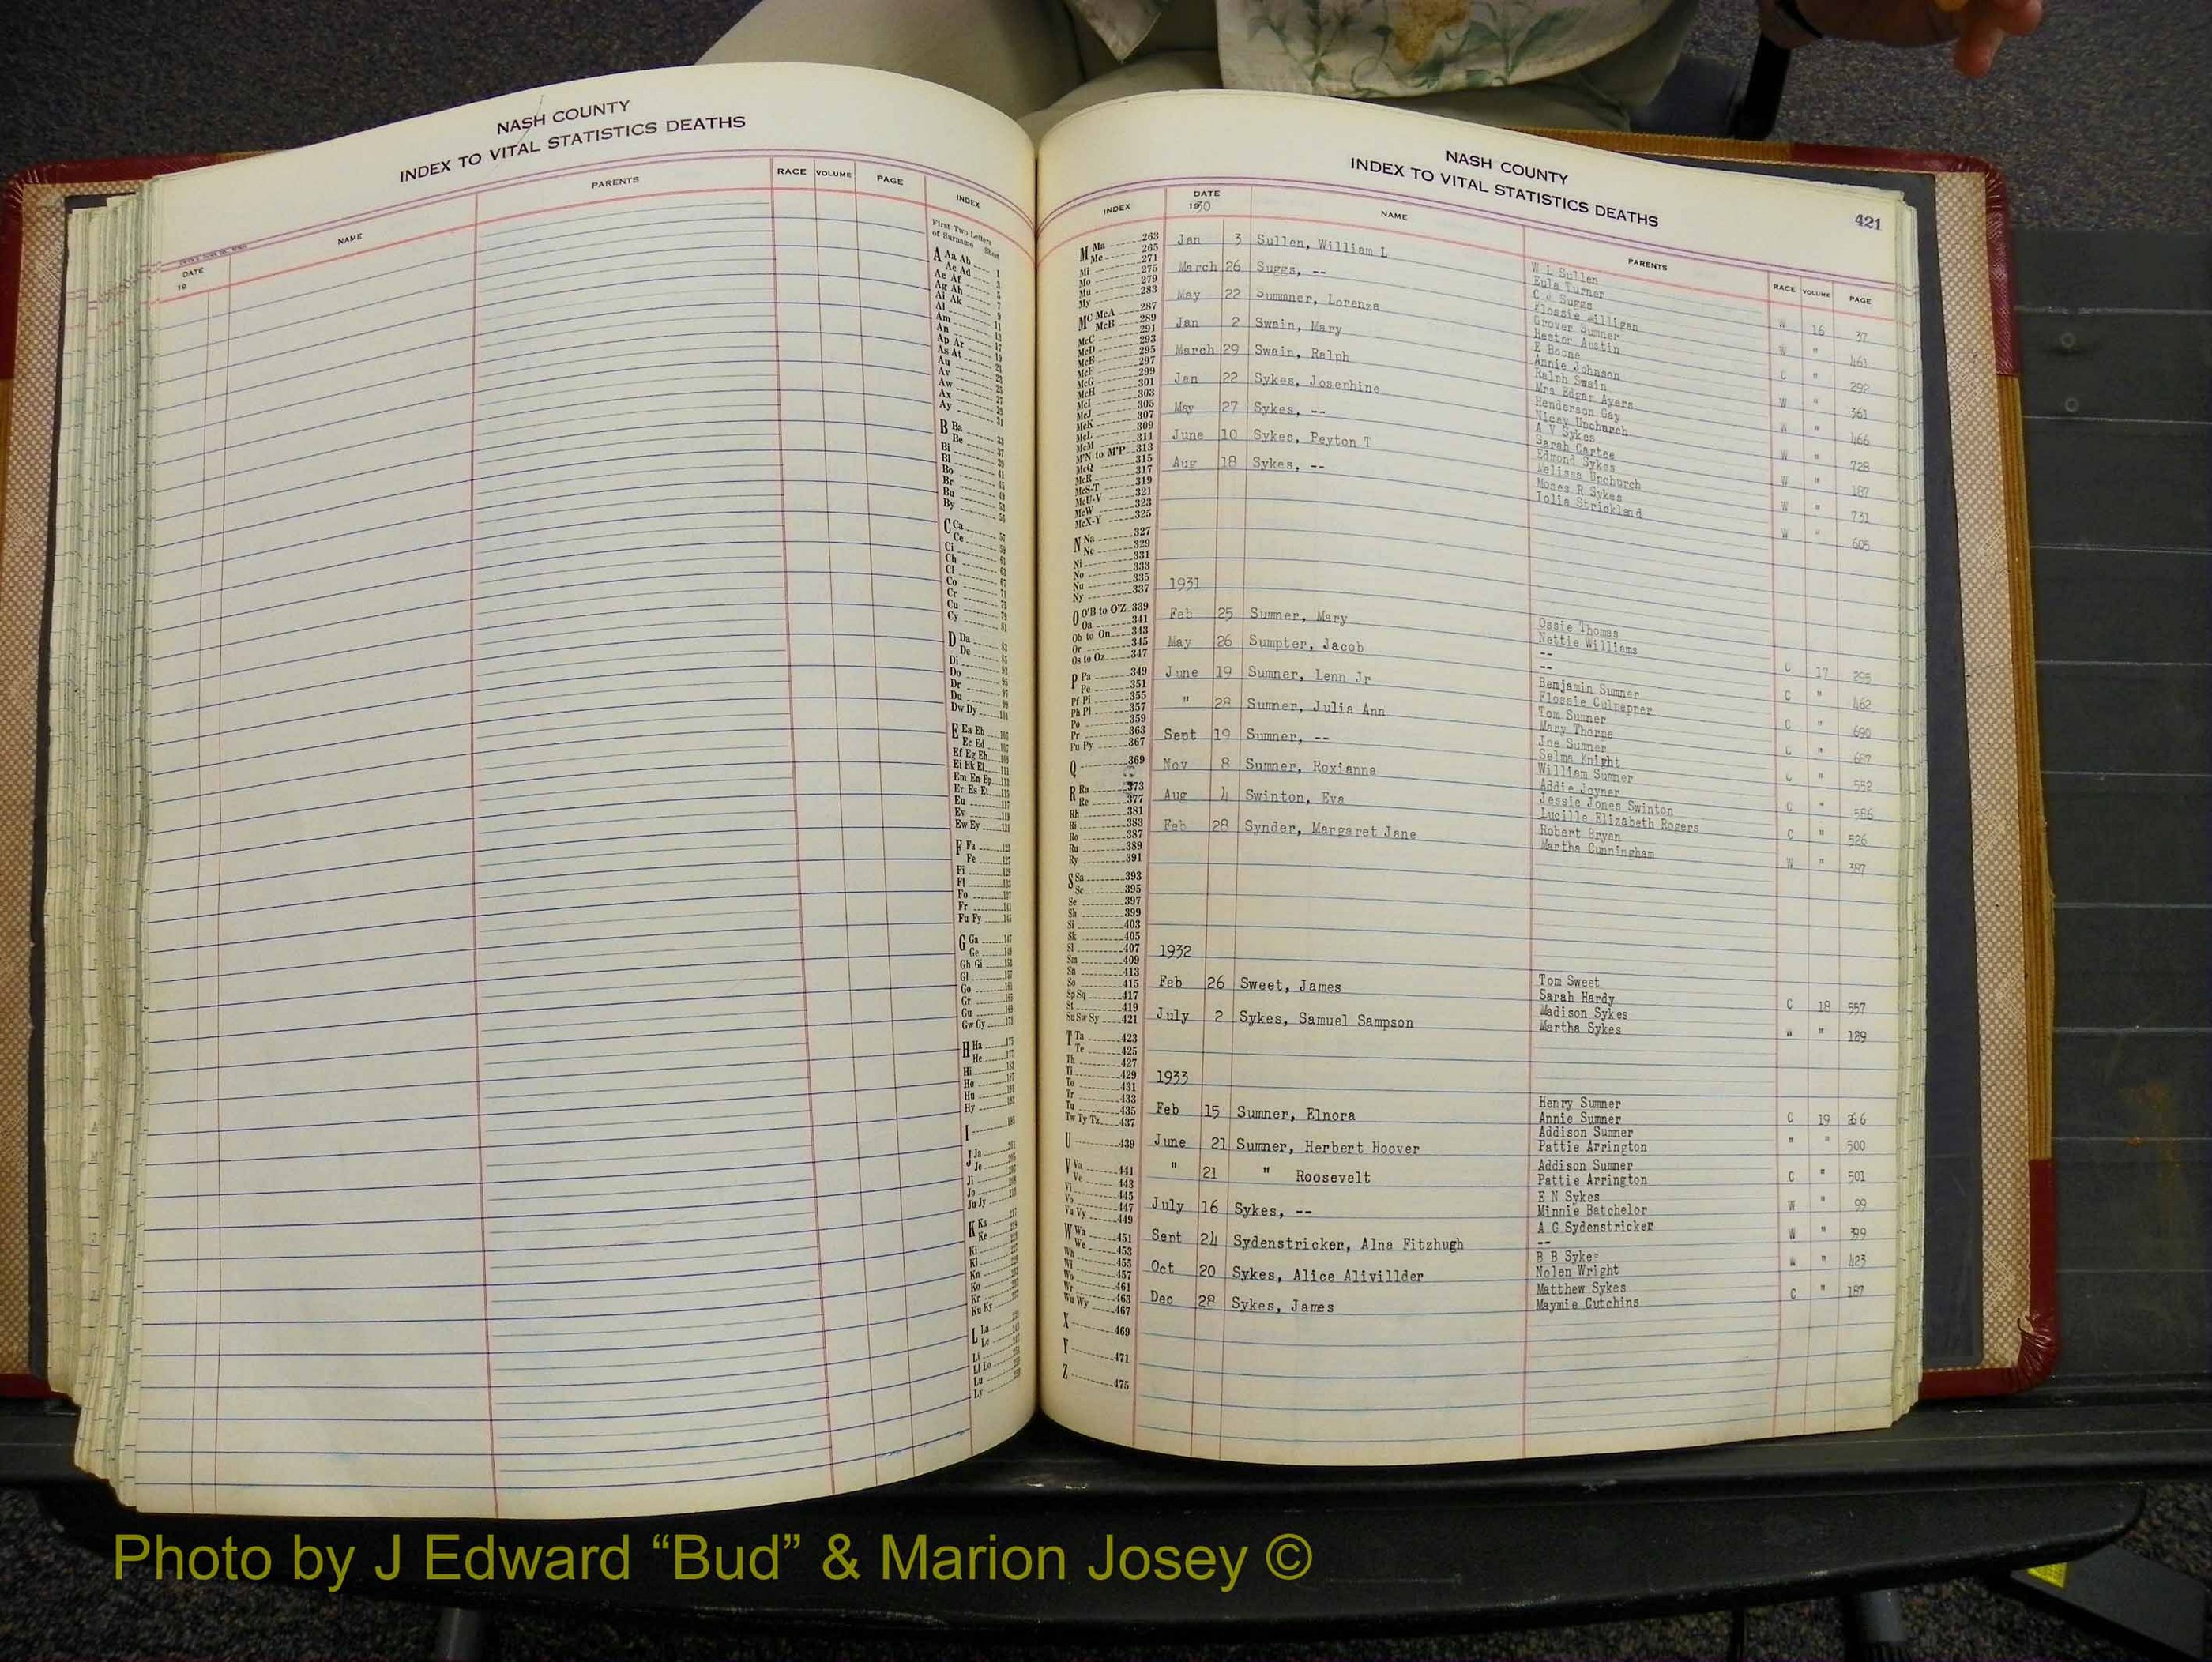 NASH COUNTY
INDEX TO VITAL STATISTICS DEATHS
DATE
19
NAME
PARENTS
RACE
VOLUME
PAGE
INDEX
First Two Letters
of Surname Sheet
A Aa Ab 1
Ac Ad 3
Ae Af 5
Ag Ah 7
Ai Ak 9
Al 11
Am 13
An
Ap Ar
As At
Au
Av
Aw
Ax
Ay 31
B Ba 33
Be 37
Bi 39
Bl 41
Bo 45
Br 49
Bu 53
By 55
C Ca 57
Ce 59
Ci 61
Ch 63
Cl 65
Co 67
Cr
Cu
Cy 81
D Da
De
Di
Do
Dr
Du
Dw Dy 101
E Ea Eb
Ec Ed
Ef Eg Eh
Ei Ek El
Em En Ep
Er Es Et
Eu
Ev
Ew Ey
F Fa
Fe
Fi
Fl
Fo
Fr
Fu Fy
G Ga
Ge
Gh Gi
Gl
Go
Gr
Gu
Gw Gy
H Ha
He
Hi
Ho
Hu
Hy
I
J Ja
Je
Ji
Jo
Ju Jy
K Ka
Ke
Ki
Kl
Kn
Ko
Kr
Ku Ky
L La
Le
Li
Ll Lo
Lu
Ly
NASH COUNTY
INDEX TO VITAL STATISTICS DEATHS
421
INDEX
DATE
1930
NAME
PARENTS
RACE
VOLUME
PAGE
M Ma 263
Me 265
Mi 271
Mo 275
Mu 279
My 283
Mc McA 287
McB 289
McC 291
McD 293
McE 295
McF 297
McG 299
McH 301
McI 303
McJ 305
McK 307
McL 309
McM 311
M'N to M'P 313
McQ 315
McR 317
McS-T 319
McU-V 321
McW 323
McX-Y 325
N Na 327
Ne 329
Ni 331
No 333
Nu 335
Ny 337
O O'B to O'Z 339
Oa 341
Ob to On 343
Or 345
Os to Oz 347
P Pa 349
Pe 351
Pf Pi 355
Ph Pl 357
Po 359
Pr 363
Pu Py 367
Q 369
R Ra 373
Re 377
Rh 381
Ri 383
Ro 387
Ru 389
Ry 391
S Sa 393
Sc 395
Se 397
Sh 399
Si 403
Sk 405
Sl 407
Sm 409
Sn 413
So 415
Sp Sq 417
St 419
Su Sw Sy 421
T Ta 423
Te 425
Th 427
Ti 429
To 431
Tr 433
Tu 435
Tw Ty Tz 437
U 439
V Va 441
Ve 443
Vi 445
Vo 447
Vu Vy 449
W Wa 451
We 453
Wh 455
Wi 457
Wo 461
Wr 463
Wu Wy 467
X 469
Y 471
Z 475
Jan 3 Sullen, William L W L Sullen
Eula Turner W 16 37
March 26 Suggs, -- C J Suggs
Flossie Willigan W " 461
May 22 Summner, Lorenza Grover Sumner
Hester Austin C " 292
Jan 2 Swain, Mary E Boone
Annie Johnson W " 361
March 29 Swain, Ralph Ralph Swain
Mrs Edgar Ayers W " 466
Jan 22 Sykes, Josephine Henderson Gay
Nicey Upchurch W " 728
May 27 Sykes, -- A V Sykes
Sarah Cartee W " 187
June 10 Sykes, Peyton T Edmond Sykes
Melissa Upchurch W " 731
Aug 18 Sykes, -- Moses R Sykes
Iolia Strickland W " 605
1931
Feb 25 Sumner, Mary Ossie Thomas
Nettie Williams C 17 295
May 26 Sumpter, Jacob --
-- C " 462
June 19 Sumner, Lenn Jr Benjamin Sumner
Flossie Culpepper C " 690
" 28 Sumner, Julia Ann Tom Sumner
Mary Thorpe C " 687
Sept 19 Sumner, -- Joe Sumner
Selma Knight C " 552
Nov 8 Sumner, Roxianna William Sumner
Addie Joyner C " 586
Aug 4 Swinton, Eva Jessie Jones Swinton
Lucille Elizabeth Rogers C " 526
Feb 28 Synder, Margaret Jane Robert Bryan
Martha Cunningham W " 387
1932
Feb 26 Sweet, James Tom Sweet
Sarah Hardy C 18 557
July 2 Sykes, Samuel Sampson Madison Sykes
Martha Sykes W " 129
1933
Feb 15 Sumner, Elnora Henry Sumner
Annie Sumner C 19 266
June 21 Sumner, Herbert Hoover Addison Sumner
Pattie Arrington " " 500
" 21 " Roosevelt Addison Sumner
Pattie Arrington C " 501
July 16 Sykes, -- E N Sykes
Minnie Batchelor W " 99
Sept 24 Sydenstricker, Alna Fitzhugh A G Sydenstricker
-- W " 399
Oct 20 Sykes, Alice Alivillder B B Sykes
Nolen Wright W " 423
Dec 28 Sykes, James Matthew Sykes
Maymie Cutchins C " 187
Photo by J Edward “Bud” & Marion Josey ©